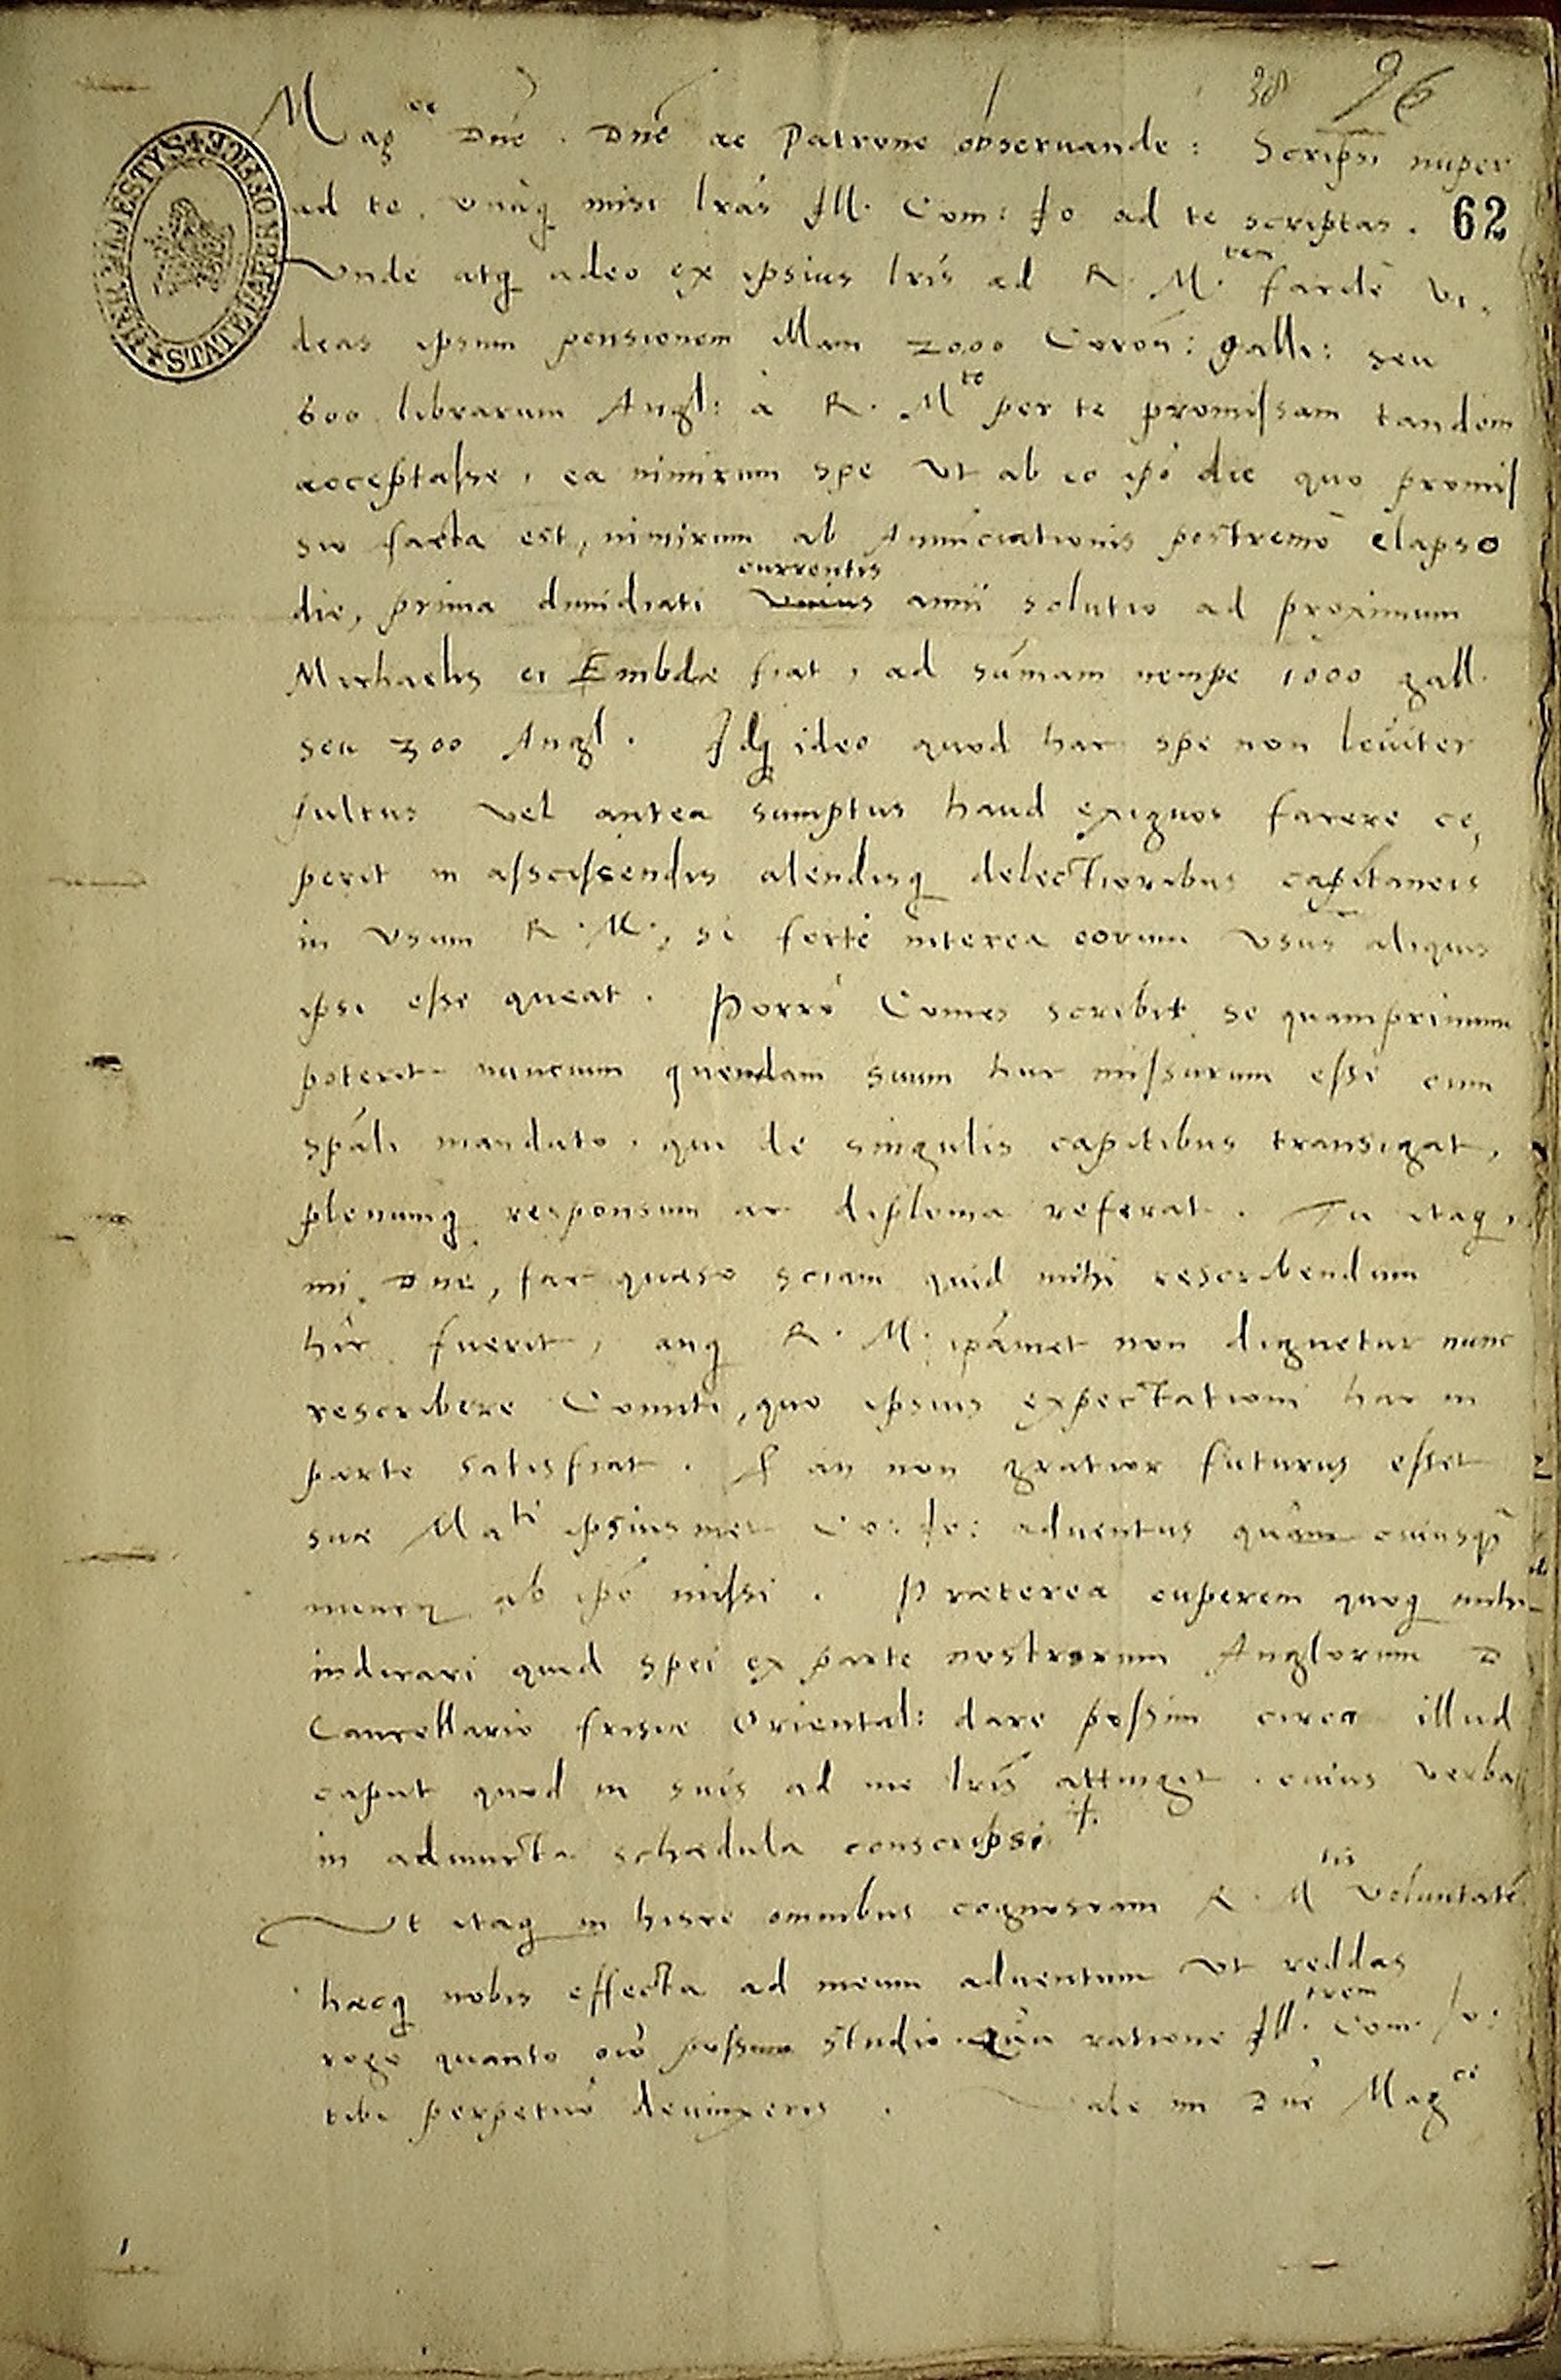 38 96
Mag^ce Dne. Dne ac Patrone observande: Scripsi nuper
ad te, unaq misi lras Ill. Com: Jo ad te scriptas. 62
Unde atq adeo ex ipsius lris ad R. M.^tem facile vi,
deas ipsum pensionem illam 2000 Coron: galli: seu
600 librarum Angl: à R. M^te per te promissam tandem
acceptasse, ea nimirum spe ut ab eo ipo die quo promis
sio facta est, nimirum ab Anunciationis postremò elapso
currentis
die, prima dimidiati unius anni solutio ad proximum
Michaelis ei Embdæ fiat, ad sumam nempe 1000 gall.
seu 300 Angl. Idq ideo quod hac spe non leviter
fultus vel antea sumptus haud exiguos facere ce,
perit in assciscendis alendisq delectioribus capitaneis
in usum R. M., si forte interea eorum usus aliquis
ipsi esse queat. Porrò Comes scribit se quamprimum
poterit nuncium quendam suum huc missurum esse cum
spali mandato, qui de singulis capitibus transigat,
plenumq responsum ac diploma referat. Tu itaq,
mi Dne, fac quæso sciam quid mihi rescribendum
hic fuerit, anq R. M. ipamet non dignetur nunc
rescribere Comiti, quo ipsius expectationi hac in
parte satisfiat. Et an non gratior futurus esset
suæ Ma^ti ipsiusmet Co: Jo: adventus quàm cuiusq
nuncij ab ipo missi. Præterea cuperem quoq mihi
indicari quid spei ex parte nostrorum Anglorum D
Cancellario Frisiæ Oriental: dare possim circa illud
caput quod in suis ad me lris attingit, cuius verba
in adiuncta schædula conscripsi ‡.
Ut itaq in hisce omnibus cognoscam R. M^tis voluntatē
hæcq nobis effecta ad meum adventum ut reddas
rogo quanto oio possum studio. Qua ratione Ill.^trem Com. Jo:
tibi perpetuò devinxeris. Vale mi Dne Mag^ce
HER MAJESTYS STATE PAPER OFFICE